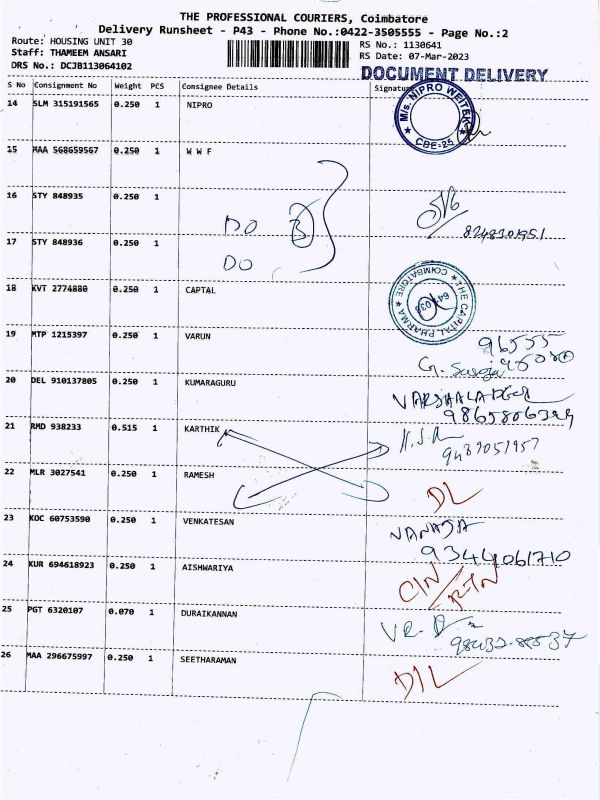 THE PROFESSIONAL COURIERS, Coimbatore
Delivery Runsheet - P43 - Phone No.:0422-3505555 - Page No.:2
Route: HOUSING UNIT 30
RS No.: 1130641
Staff: THAMEEM ANSARI
RS Date: 07-Mar-2023
DRS No.: DCJB113064102
DOCUMENT DELIVERY
S No Consignment No Weight PCS Consignee Details Signature
14 SLM 315191565 0.250 1 NIPRO
M/s. NIPRO WEITEK
CBE-25
15 MAA 568659567 0.250 1 W W F
16 STY 848935 0.250 1
DO
17 STY 848936 0.250 1
DO
18 KVT 2774880 0.250 1 CAPTAL
THE CAPITAL PHARMA
COIMBATORE
19 MTP 1215397 0.250 1 VARUN
96555
20 DEL 910137805 0.250 1 KUMARAGURU
21 RMD 938233 0.515 1 KARTHIK
9487051957
22 MLR 3027541 0.250 1 RAMESH
DL
23 KOC 60753590 0.250 1 VENKATESAN
VANAJA
9344061710
24 KUR 694618923 0.250 1 AISHWARIYA
CIN/RTN
25 PGT 6320107 0.070 1 DURAIKANNAN
26 MAA 296675997 0.250 1 SEETHARAMAN
D/L